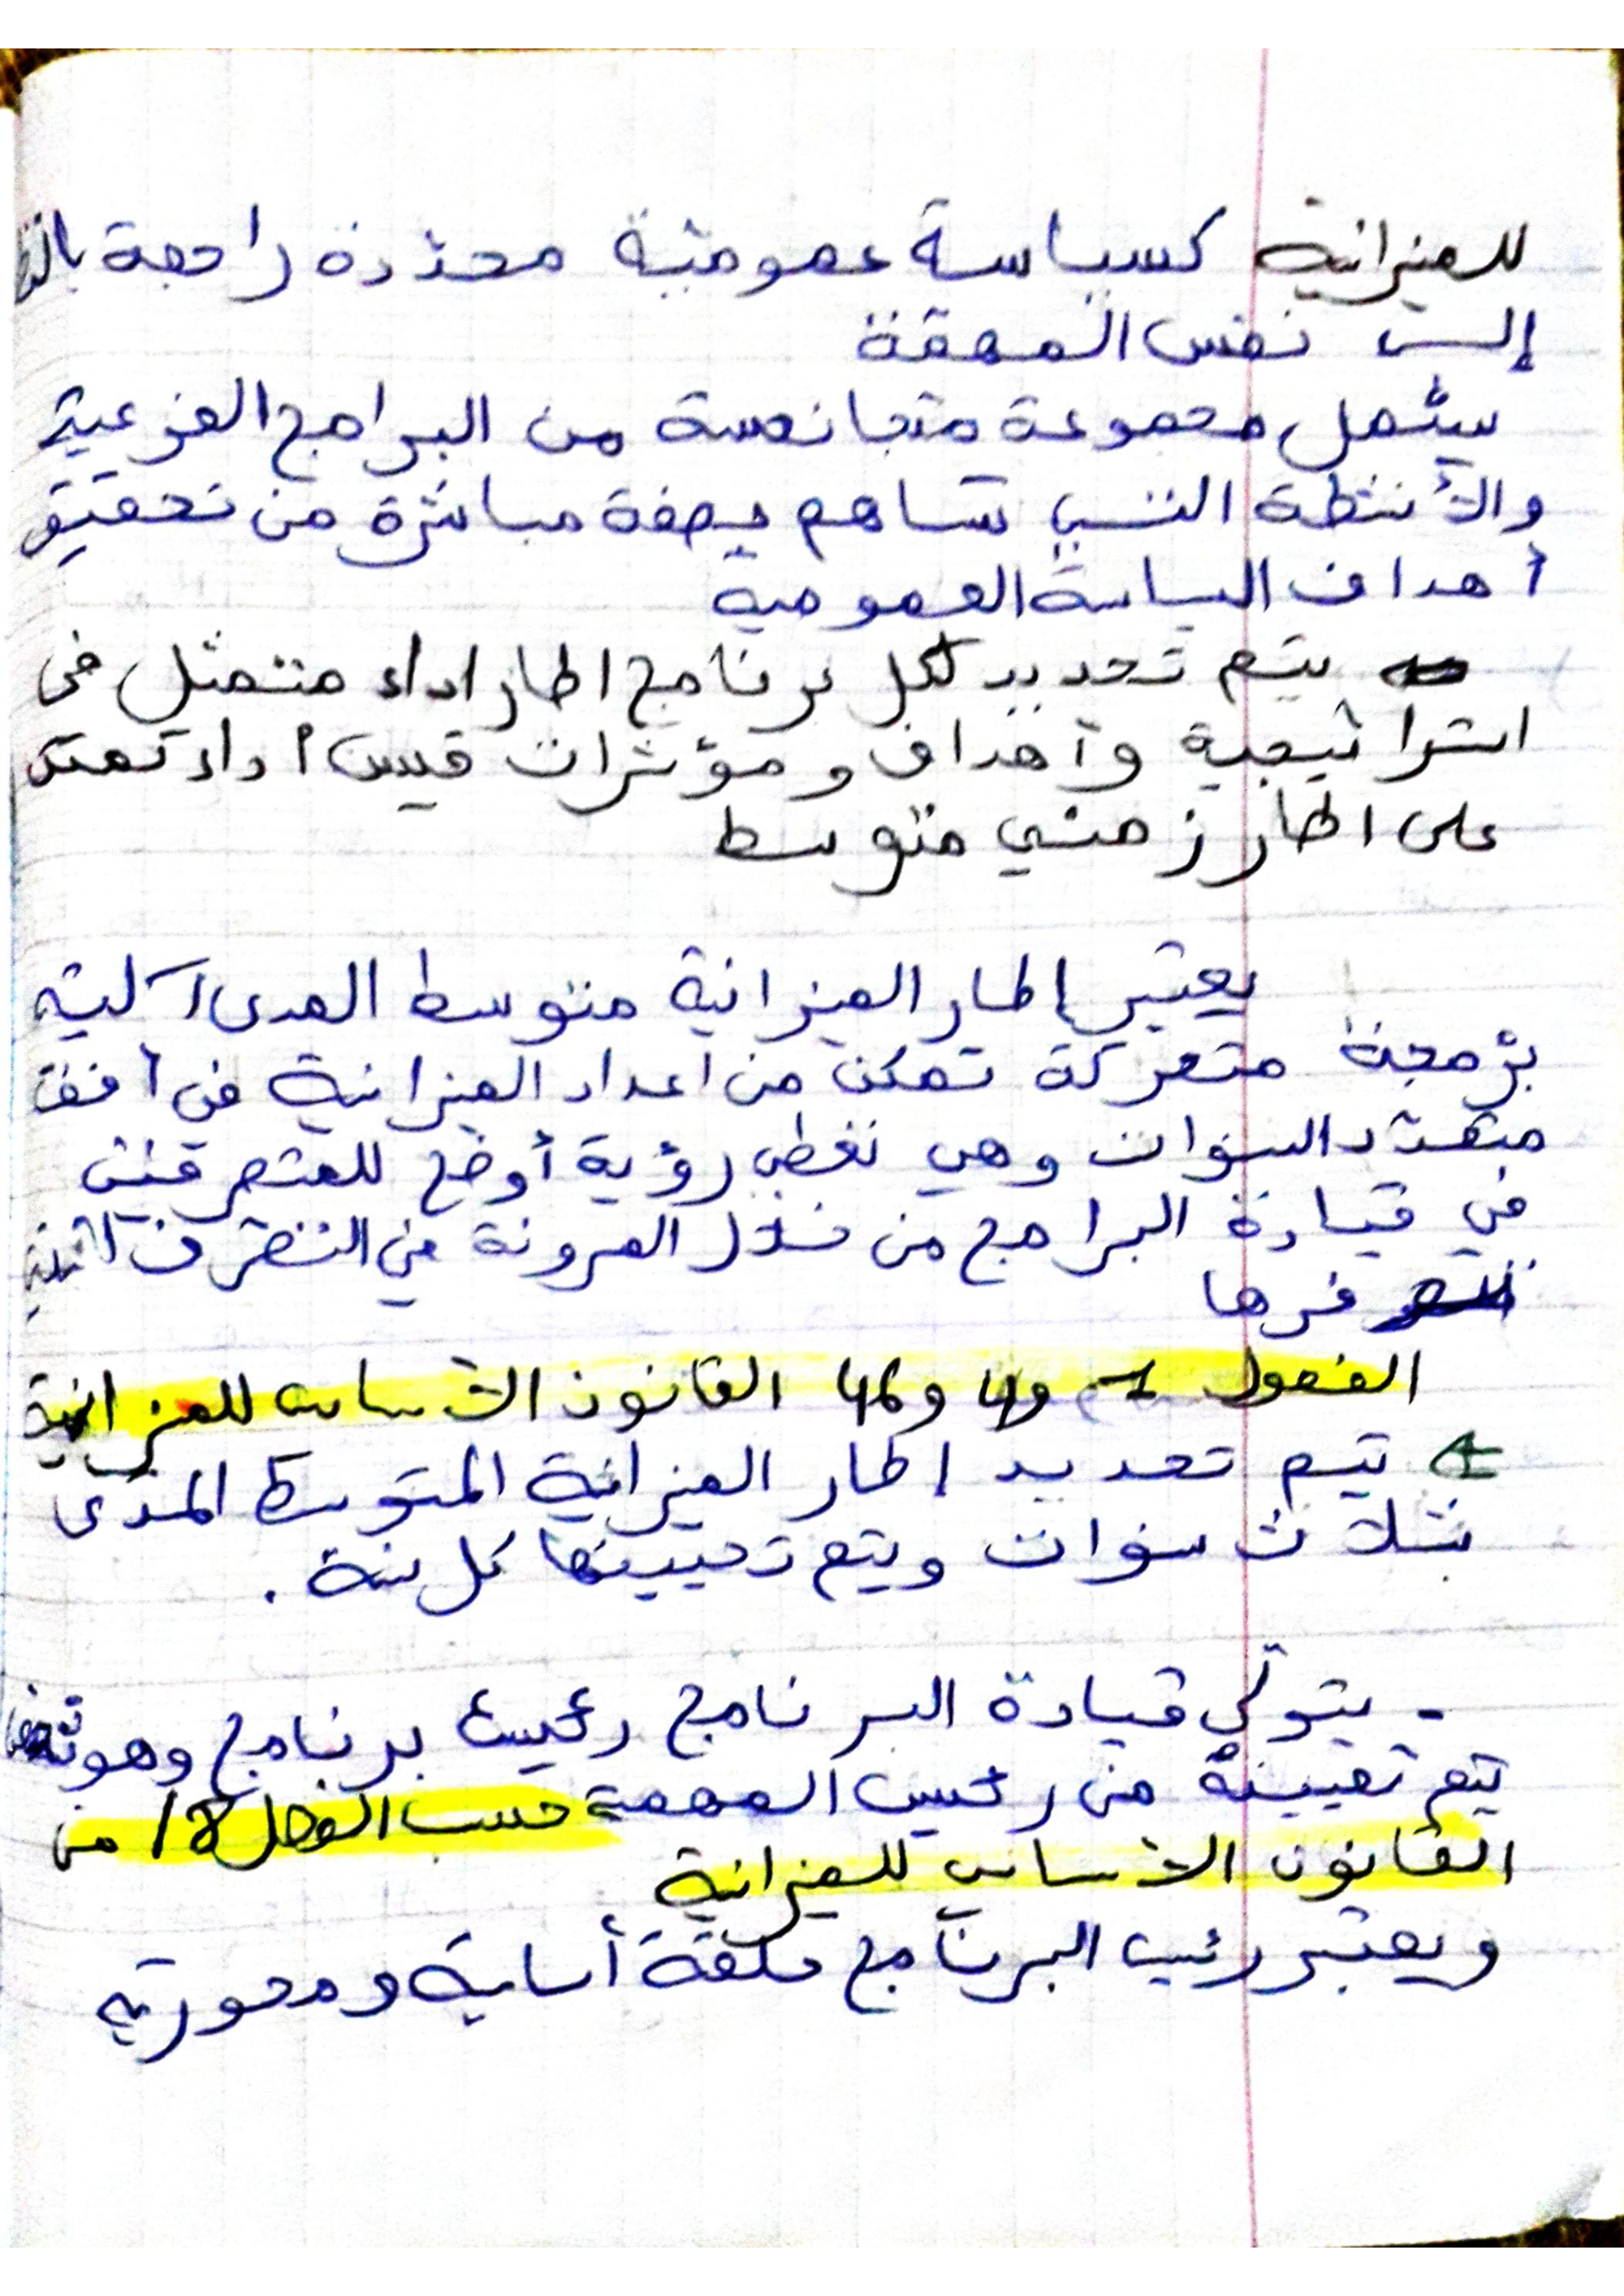 للميزانية كسياسة عمومية محددة راجعة بالنظر
إلى نفس المهمة
يشمل مجموعة متجانسة من البرامج الفرعية
والأنشطة التي تساهم بصفة مباشرة من تحقيق
أهداف السياسة العمومية
يتم تحديد لكل برنامج اطار اداء متمثل في
استراتيجية وأهداف و مؤشرات قيس أداء تمتد
على اطار زمني متوسط
يعتبر إطار الميزانية متوسط المدى آلية
برمجة متحركة تمكن من اعداد الميزانية في أفق
متعدد السنوات وهي تعطي رؤية أوضح للمتصرفين
في قيادة البرامج من خلال المرونة في التصرف
الفصول و 4 و 46 القانون الأساسي للميزانية
يتم تحديد إطار الميزانية المتوسط المدى
بثلاث سنوات ويتم تحيينها كل سنة .
- يتولى قيادة البرنامج رئيس برنامج وهو
يتم تعيينه من رئيس المهمة حسب الفصل 18 من
القانون الأساسي للميزانية
ويعتبر رئيس البرنامج حلقة أساسية ومحورية